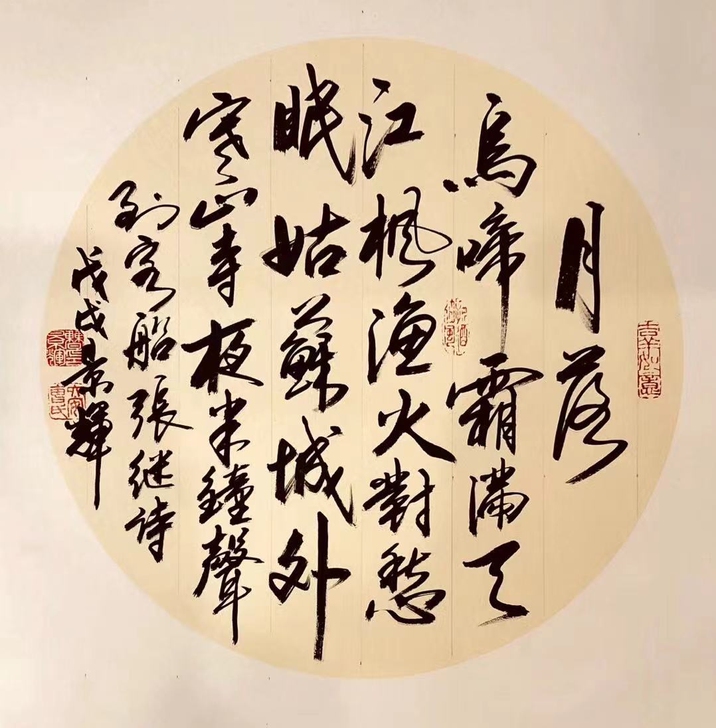 月落
烏啼霜滿天
江楓漁火對愁
眠姑蘇城外
寒山寺夜半鐘聲
到客船張继诗
戊戌景輝